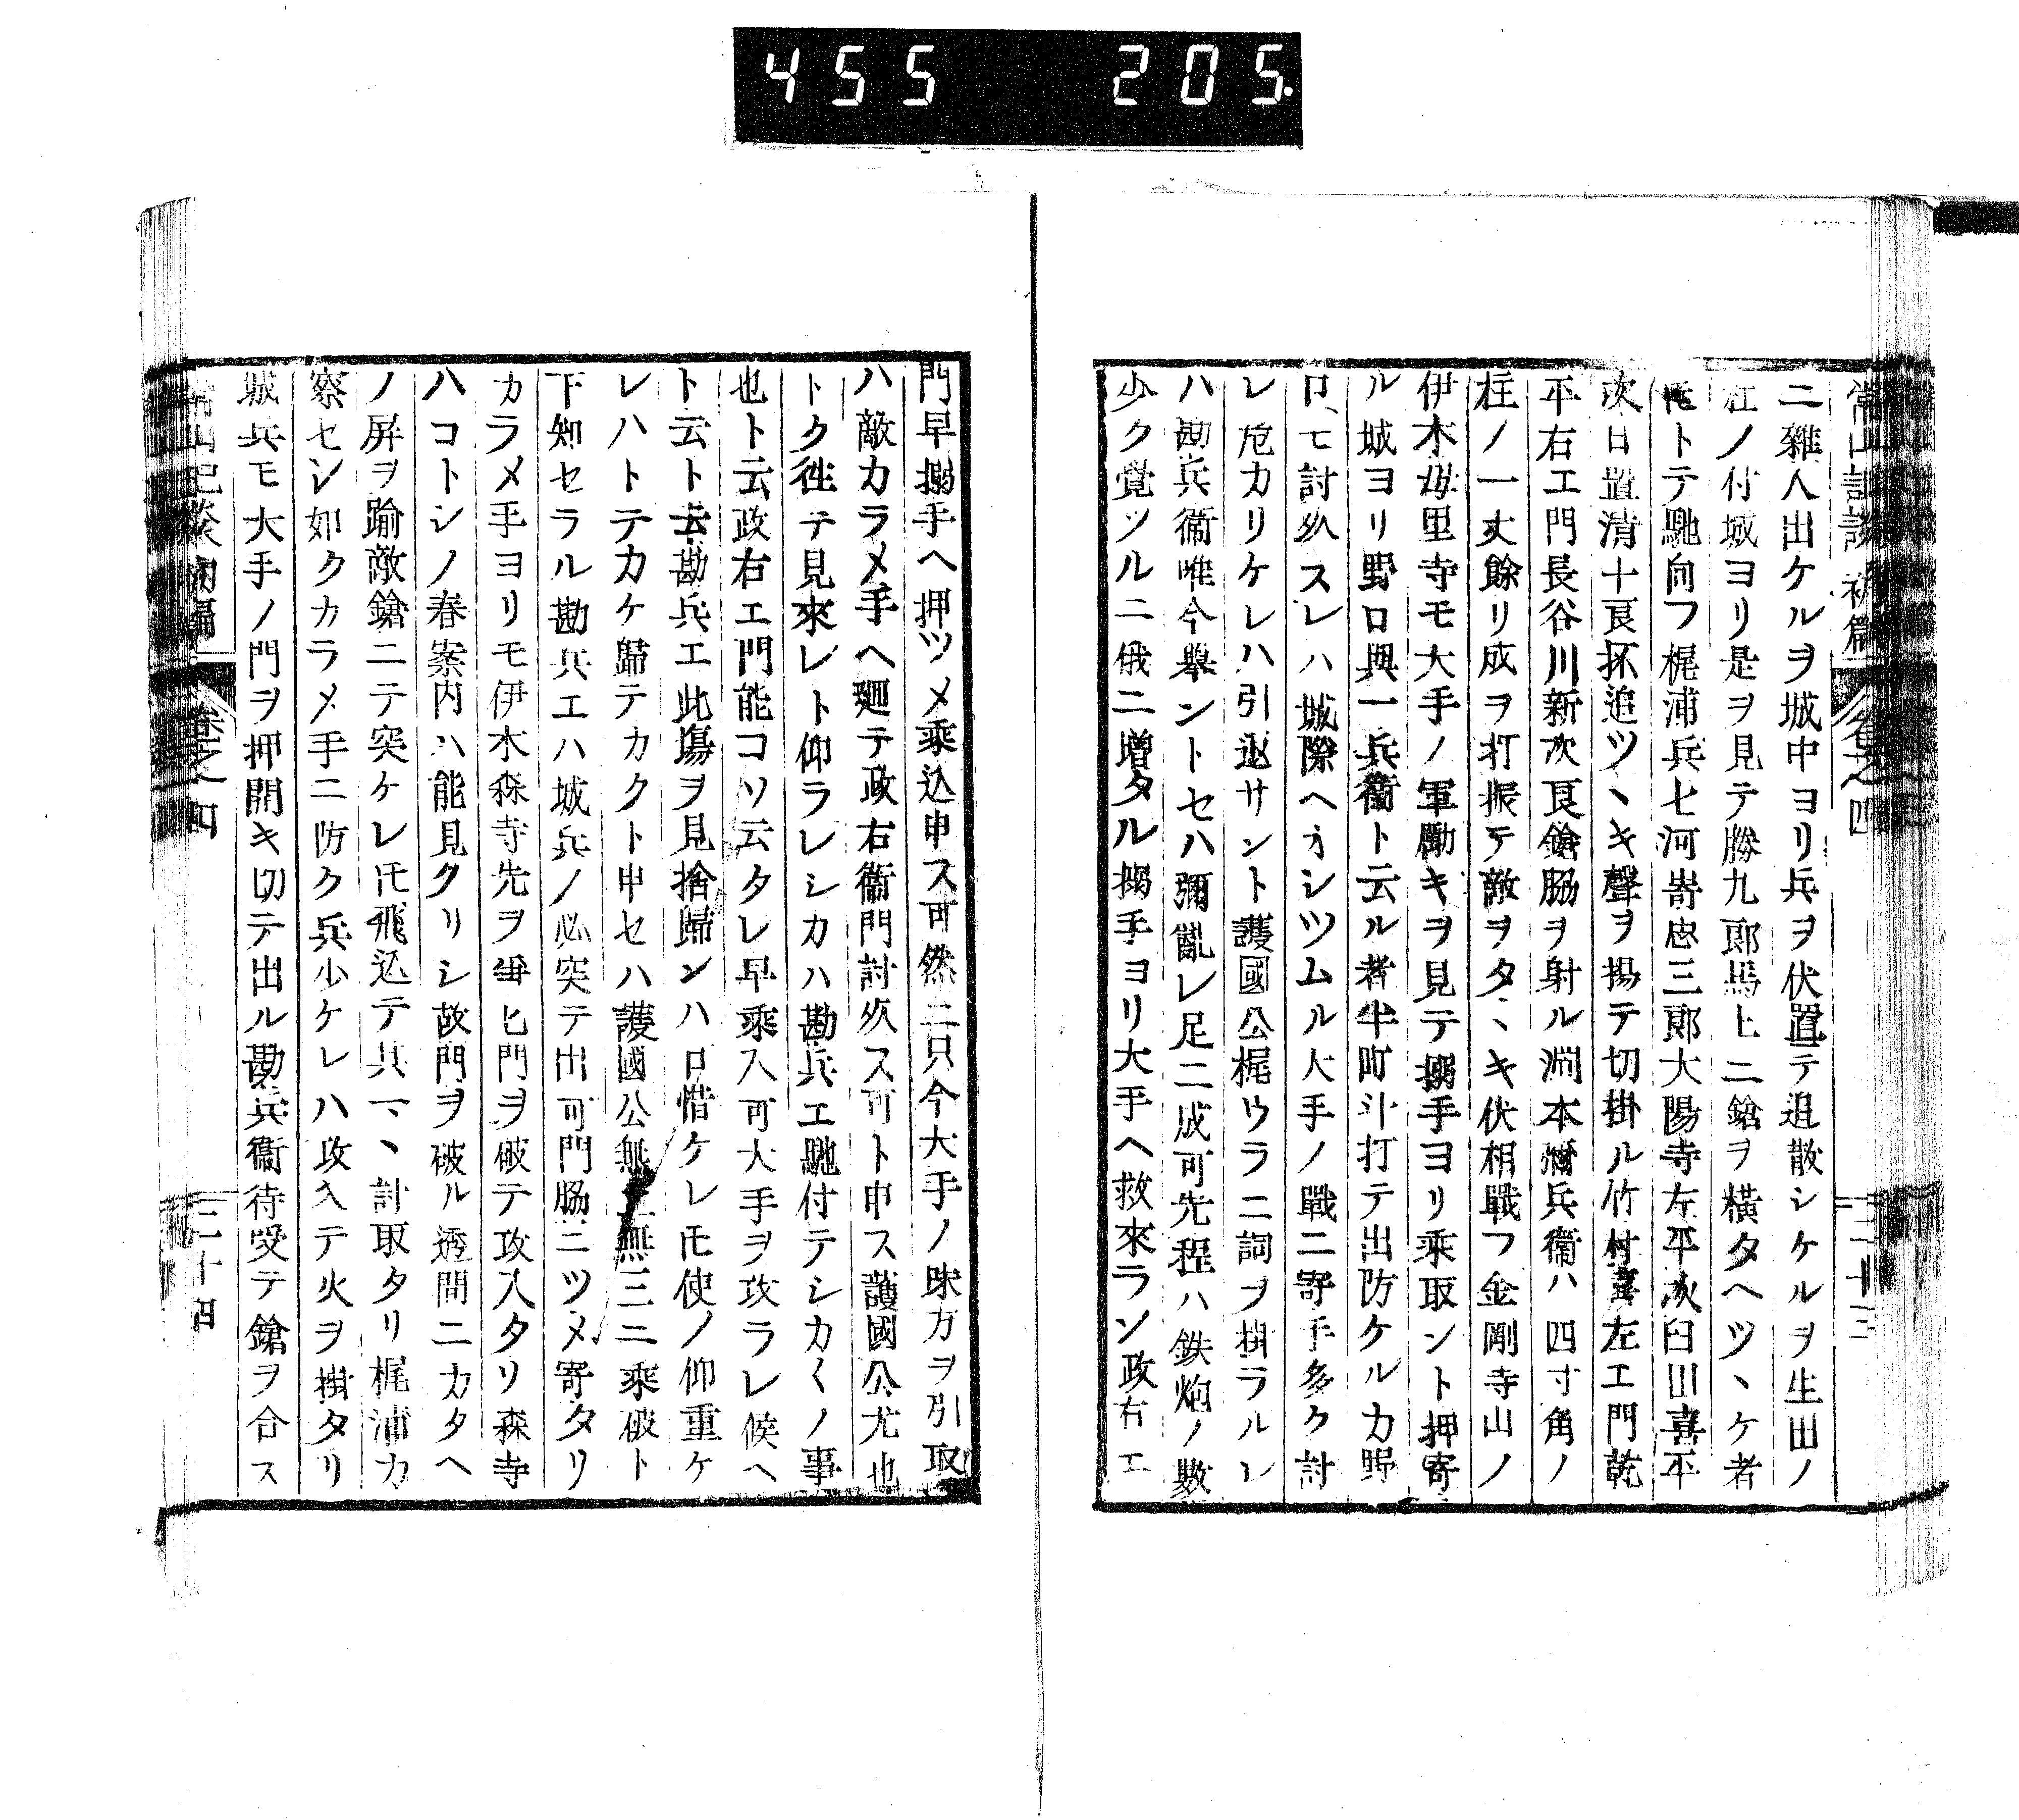 455 205
常山記談 初篇 卷之四 三十三
ニ雜人出ケルヲ城中ヨリ兵ヲ伏置テ追散シケルヲ生田ノ
庄ノ付城ヨリ是ヲ見テ勝九郎馬上ニ鎗ヲ橫タヘツヽケ者
トテ馳向フ梶浦兵七河嵜忠三郎大陽寺左平次臼田喜平
次日置清十良抔追ツヽキ聲ヲ揚テ切掛ル竹村喜左エ門乾
平右エ門長谷川新次良鎗脇ヲ射ル渊本彌兵衞ハ四寸角ノ
柱ノ一丈餘リ成ヲ打振テ敵ヲタヽキ伏相戰フ金剛寺山ノ
伊木母里寺モ大手ノ軍勵キヲ見テ搦手ヨリ乘取ント押寄
ル城ヨリ野口與一兵衞ト云ル者半町斗打テ出防ケルカ野
口モ討死スレハ城際ヘオシツムル大手ノ戰ニ寄手多ク討
レ危カリケレハ引返サント護國公梶ウラニ詞ヲ掛ラルレ
ハ勘兵衞唯今擧ントセハ彌亂レ足ニ成可先程ハ鉄炮ノ數
少ク覚ツルニ俄ニ增タル搦手ヨリ大手ヘ救來ラン政右エ
門早搦手ヘ押ツメ乘込申ス可然ニ只今大手ノ味方ヲ引取
ハ敵カラメ手ヘ廻テ政右衞門討死ス可ト申ス護國公尤也
トク徃テ見來レト仰ラレシカハ勘兵エ馳付テシカ〱ノ事
也ト云政右エ門能コソ云タレ早乘入可大手ヲ攻ラレ候ヘ
ト云ト云勘兵エ此塲ヲ見捨歸ンハ口惜ケレ𪜈使ノ仰重ケ
レハトテカケ歸テカクト申セハ護國公無二無三ニ乘破ト
下知セラル勘兵エハ城兵ノ必突テ出可門脇ニツメ寄タリ
カラメ手ヨリモ伊木森寺先ヲ爭ヒ門ヲ破テ攻入タリ森寺
ハコトシノ春案内ハ能見クリシ故門ヲ破ル透間ニカタヘ
ノ屏ヲ踰敵鎗ニテ突ケレ𪜈飛込テ其一ヽ討取タリ梶浦カ
察セシ如クカラメ手ニ防ク兵少ケレハ攻入テ火ヲ掛タリ
城兵モ大手ノ門ヲ押開キ切テ出ル勘兵衞待受テ鎗ヲ合ス
卷之四 三十四